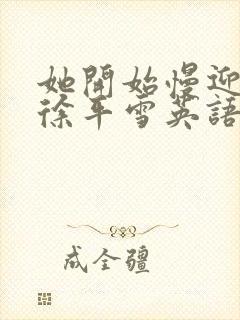 她開始慢迎
徐平雪英語
成全疆